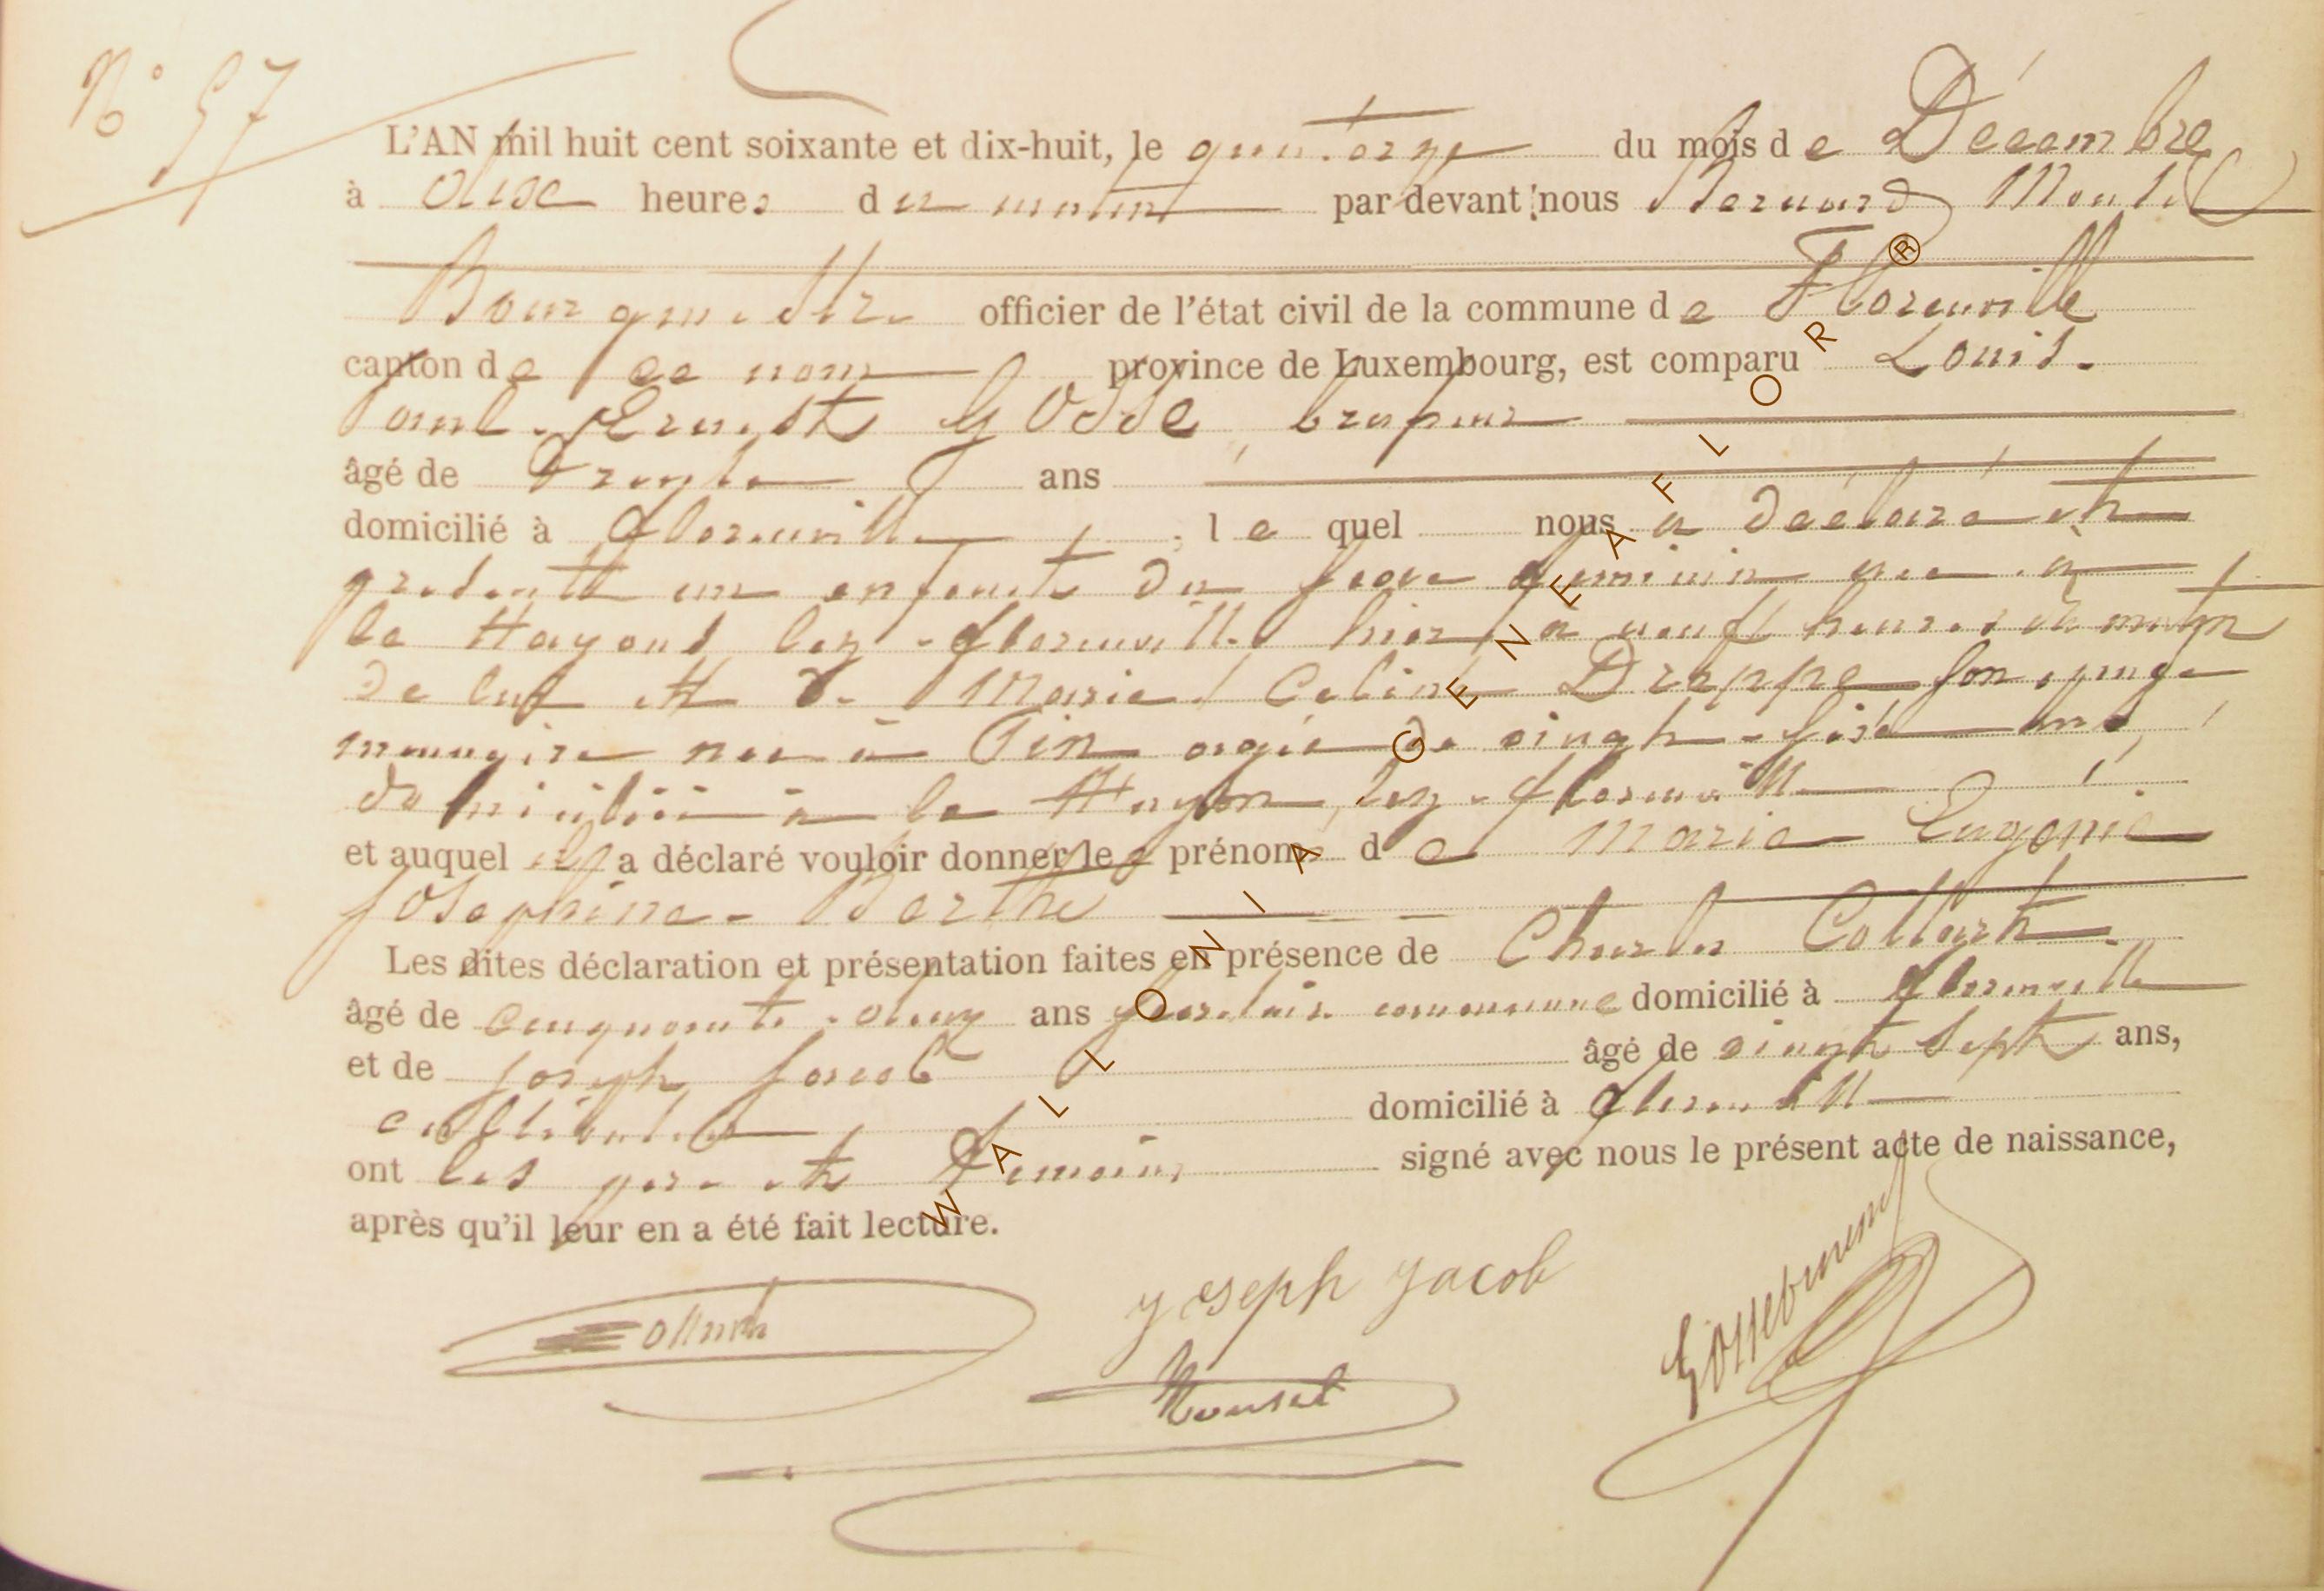 N° 57
L'AN mil huit cent soixante et dix-huit, le quatorze du mois de Décembre
à onze heures du matin par devant nous Bernard
Bourgmestre officier de l'état civil de la commune de Florenville
canton de ce nom province de Luxembourg, est comparu Louis-
Paul-Ernest Gosse, brasseur
âgé de trente ans
domicilié à Florenville, lequel nous a déclaré et
présenté un enfant du sexe féminin née à
la Hayons lez-Florenville hier à neuf heures du matin
de lui et de Marie Celine Drappe son épouse
menagère née à Pin agée de vingt-six ans,
domiciliée à la Hayon, lez-Florenville
et auquel il a déclaré vouloir donner les prénoms de Marie Eugenie
Josephine-Berthe
Les dites déclaration et présentation faites en présence de Charles Collart
âgé de cinquante-deux ans communal domicilié à Florenville
et de Joseph Jacob âgé de vingt sept ans,
cultivateur, domicilié à Florenville
ont les père et témoins signé avec nous le présent acte de naissance,
après qu'il leur en a été fait lecture.
Collart
Joseph Jacob
WALLONIA GENEAFLOR ®